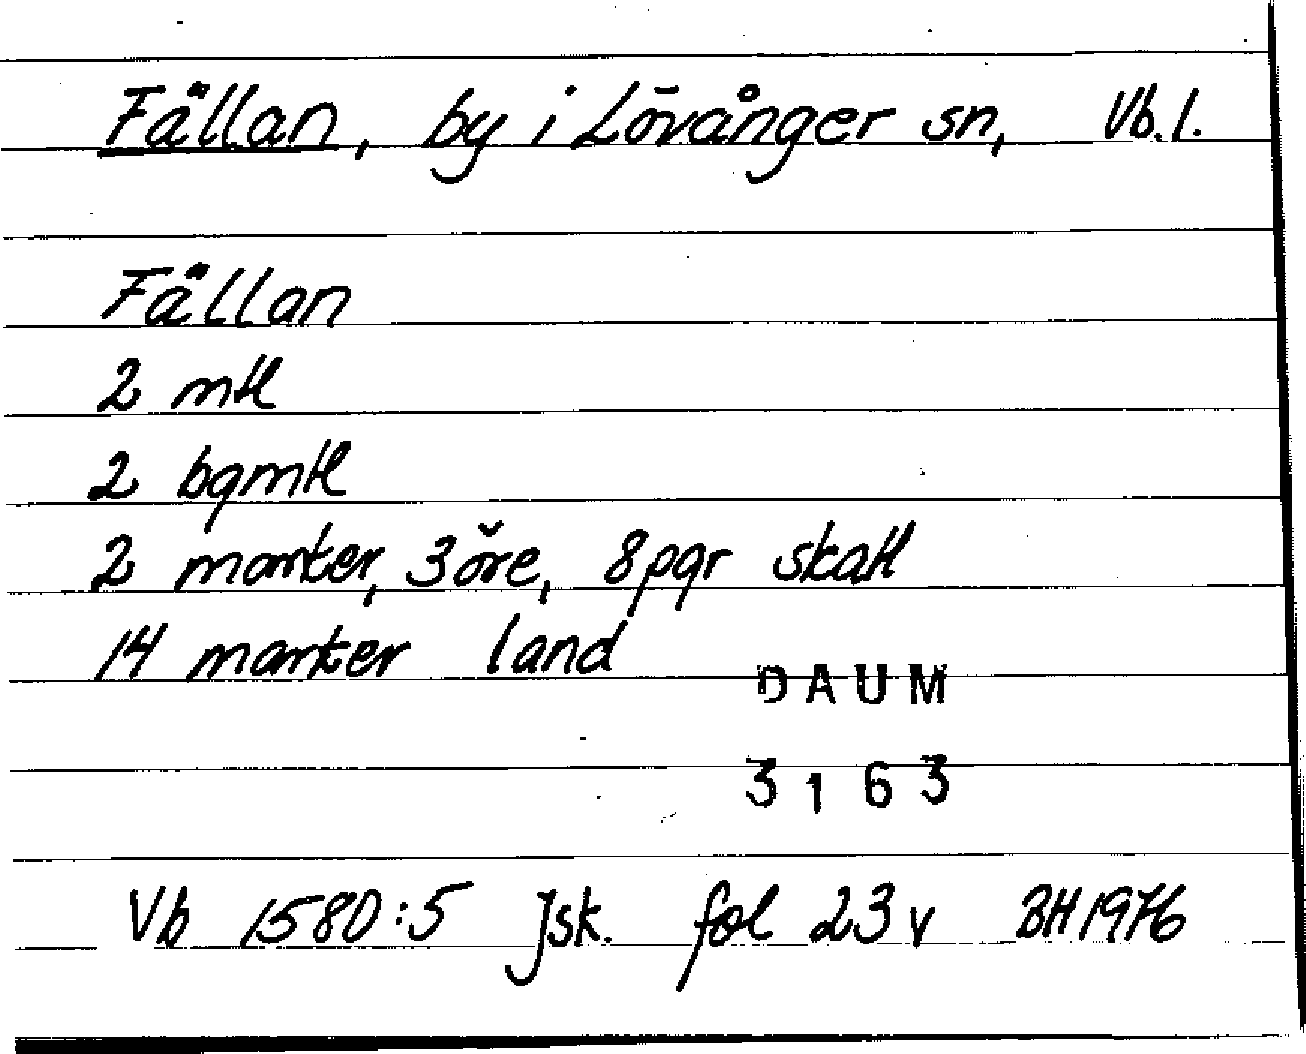 Fällan, by i Lövånger sn, Vb.l.
Fällan
2 mtl
2 bgmtl
2 marker, 3 öre, 8 pgr skatt
14 marker land
DAUM
3163
Vb 1580:5 Jsk. fol 23 v BH 1976